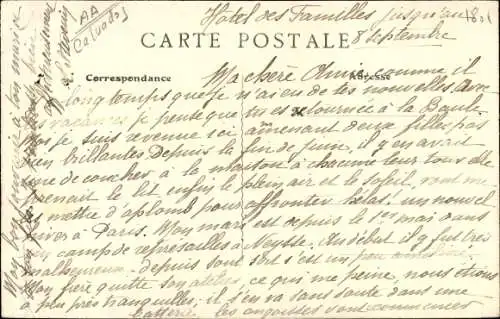 Hôtel des Familles jusqu'au
8 septembre
AA
Calvados
CARTE POSTALE
Correspondance
Adresse
Ma chère Amie, comme il
longtemps que je n'ai eu de tes nouvelles. Avec
vacances je pense que tu es retournée à la Baule
Moi je suis revenue ici amenant deux filles pas
bien brillantes. Depuis la fin de juin, il y en avait
une de couchée à la maison à chacune leur tour elle
prenait le lit enfin le plein air et le soleil, vont me
mettre d'aplomb pour affronter hélas! un nouvel
hiver à Paris. Mon mari est depuis le 1er mai dans
un camp de représailles à Neysse. Au début il y fut très
malheureux. depuis tout s'est un peu
Mon frère quitte son ce qui me peine, nous étions
à plus près tranquilles; il s'en va sans doute dans une
batterie, les angoisses vont commencer
Mon bon souvenir à ton mari